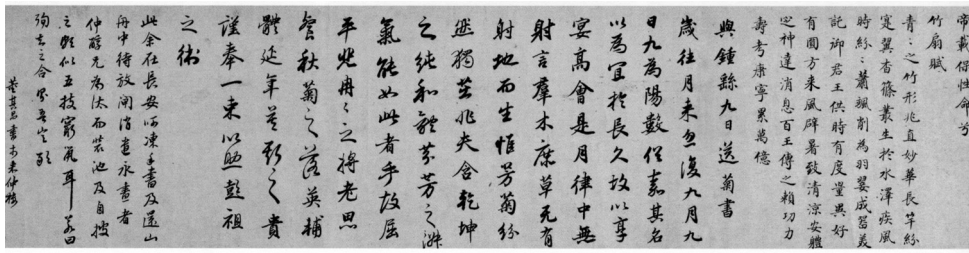 帝載保性命兮
竹扇賦
青〻之竹形兆直妙華長竿紛
寔翼杳篠叢生於水澤疾風
時紛〻蕭颯削為羽翼成器美
託御君王供時有度量異好
有圓方來風辟暑致清涼安體
定神達消息百王傳之賴功力
壽考康寧累萬億
與鍾繇九日送菊書
歲往月來忽復九月九
日九為陽數俗嘉其名
以為宜於長久故以享
宴高會是月律中無
射言羣木庶草无有
射地而生惟芳菊紛
然獨榮非夫含乾坤
之純和體芬芳之淑
氣能如此者乎故屈
平悲冉〻之將老思
餐秋菊之落英補
體延年莫斯之貴
謹奉一束以助彭祖
之術
此余在長安河凍手書及還山
舟中待放閘消遣永晝者
仲醇兄為汰而裝池及自披
之頗似五技窮鼠耳
董其昌書